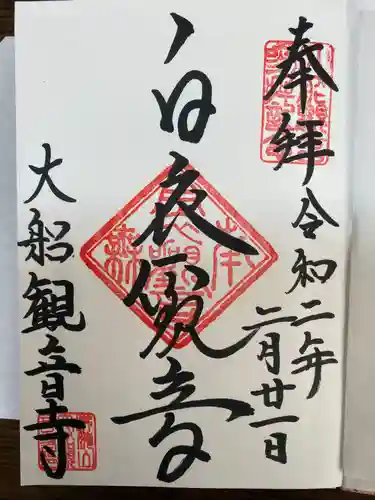 奉拝 令和二年
二月廿一日
白衣観音
大船観音寺